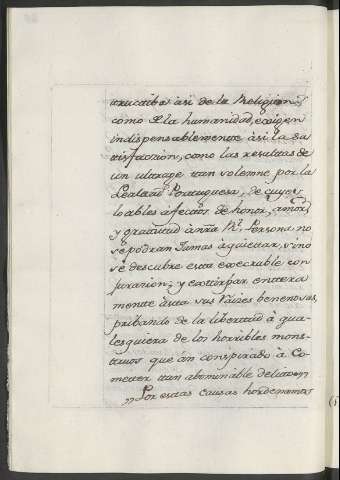 trucaibas así de la Religion
como de la humanidad, exigen
indispensablemente àsi la sa
tisfacion, como las resultas de
un ultrage tan solemne por la
Lealtad Portuguesa, de cuyos
loables àfectos de honor, amor,
y gratitud ànra Rl. Persona no
se podran Jamas àquietar, sino
se descubre esta execrable con
juracion; y extirpar entera
mente àsta sus raizes benenosas,
pribando de la libertad à qua
lesquiera de los horribles mons
truos que àn conspirado à Co
metter tan abominable delito
„ Por estas causas hordenamos